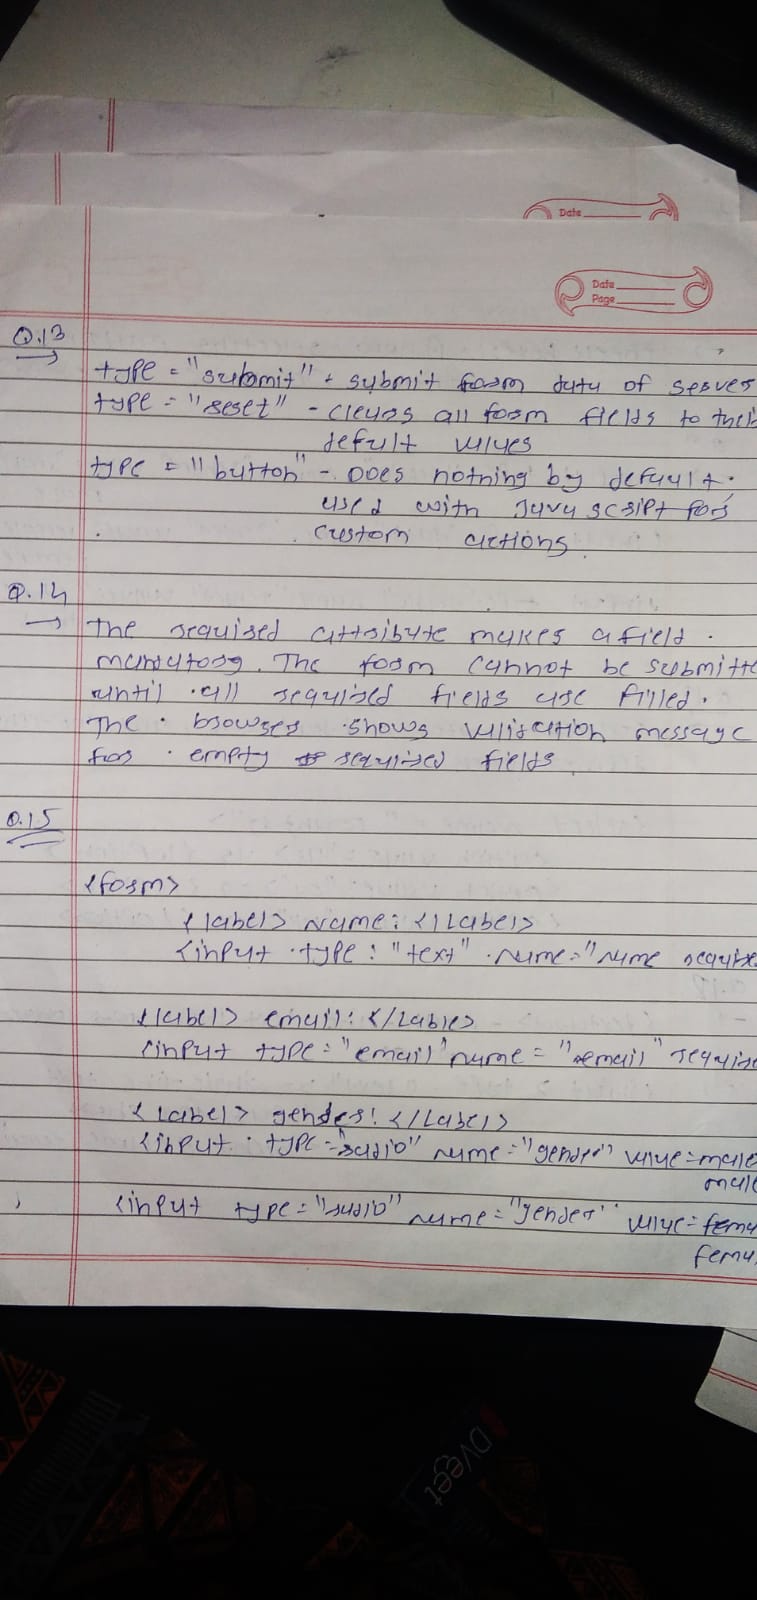 Date
Date
Page
Q.13
type = "submit" - submit form data of server
type = "reset" - clears all form fields to their
default values
type = "button" - Does nothing by default.
used with Java script for
custom actions
Q.14
The required attribute makes a field.
mandatory. The form cannot be submitte
until all required fields are filled.
The browser shows validation message
for empty required fields
Q.15
<form>
<label> Name: </label>
<input type: "text" name="name require
<label> email: </lable>
<input type="email" name = "email" require
<label> gender: </label>
<input type="radio" name="gender" value=male
male
<input type="radio" name="gender" value=fema
fema
DVeet